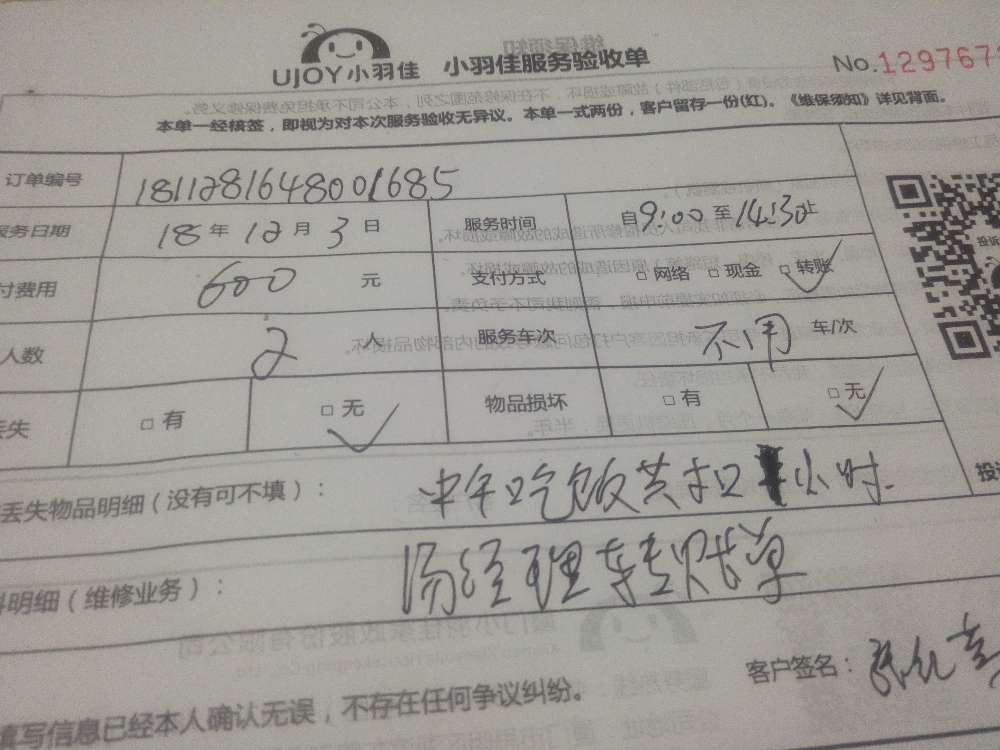 UJOY小羽佳 小羽佳服务验收单 No.129767
本单一经核签，即视为对本次服务验收无异议。本单一式两份，客户留存一份(红)。《维保须知》详见背面。
订单编号 1811281648001685
服务日期 18年12月3日 服务时间 自9:00至14:30止
付费用 600元 支付方式 □网络 □现金 □转账
人数 2人 服务车次 不用 车/次
丢失 □有 □无 物品损坏 □有 □无
丢失物品明细（没有可不填）： 中午吃饭共扣 小时
明细（维修业务）： 汤经理转账单
客户签名：
填写信息已经本人确认无误，不存在任何争议纠纷。